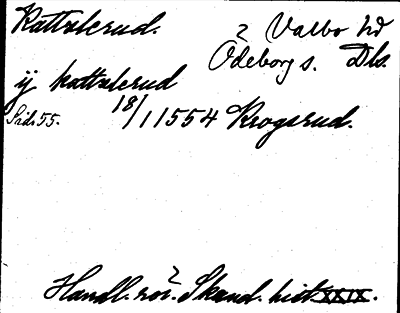 Kattalerud. 2 Valbo hd
Ödeborg s. Dls.
ij kattalerud
Sid. 55. 18/1 1554 Krogsrud.
Handl. rör. Skand. hist. XXIX.